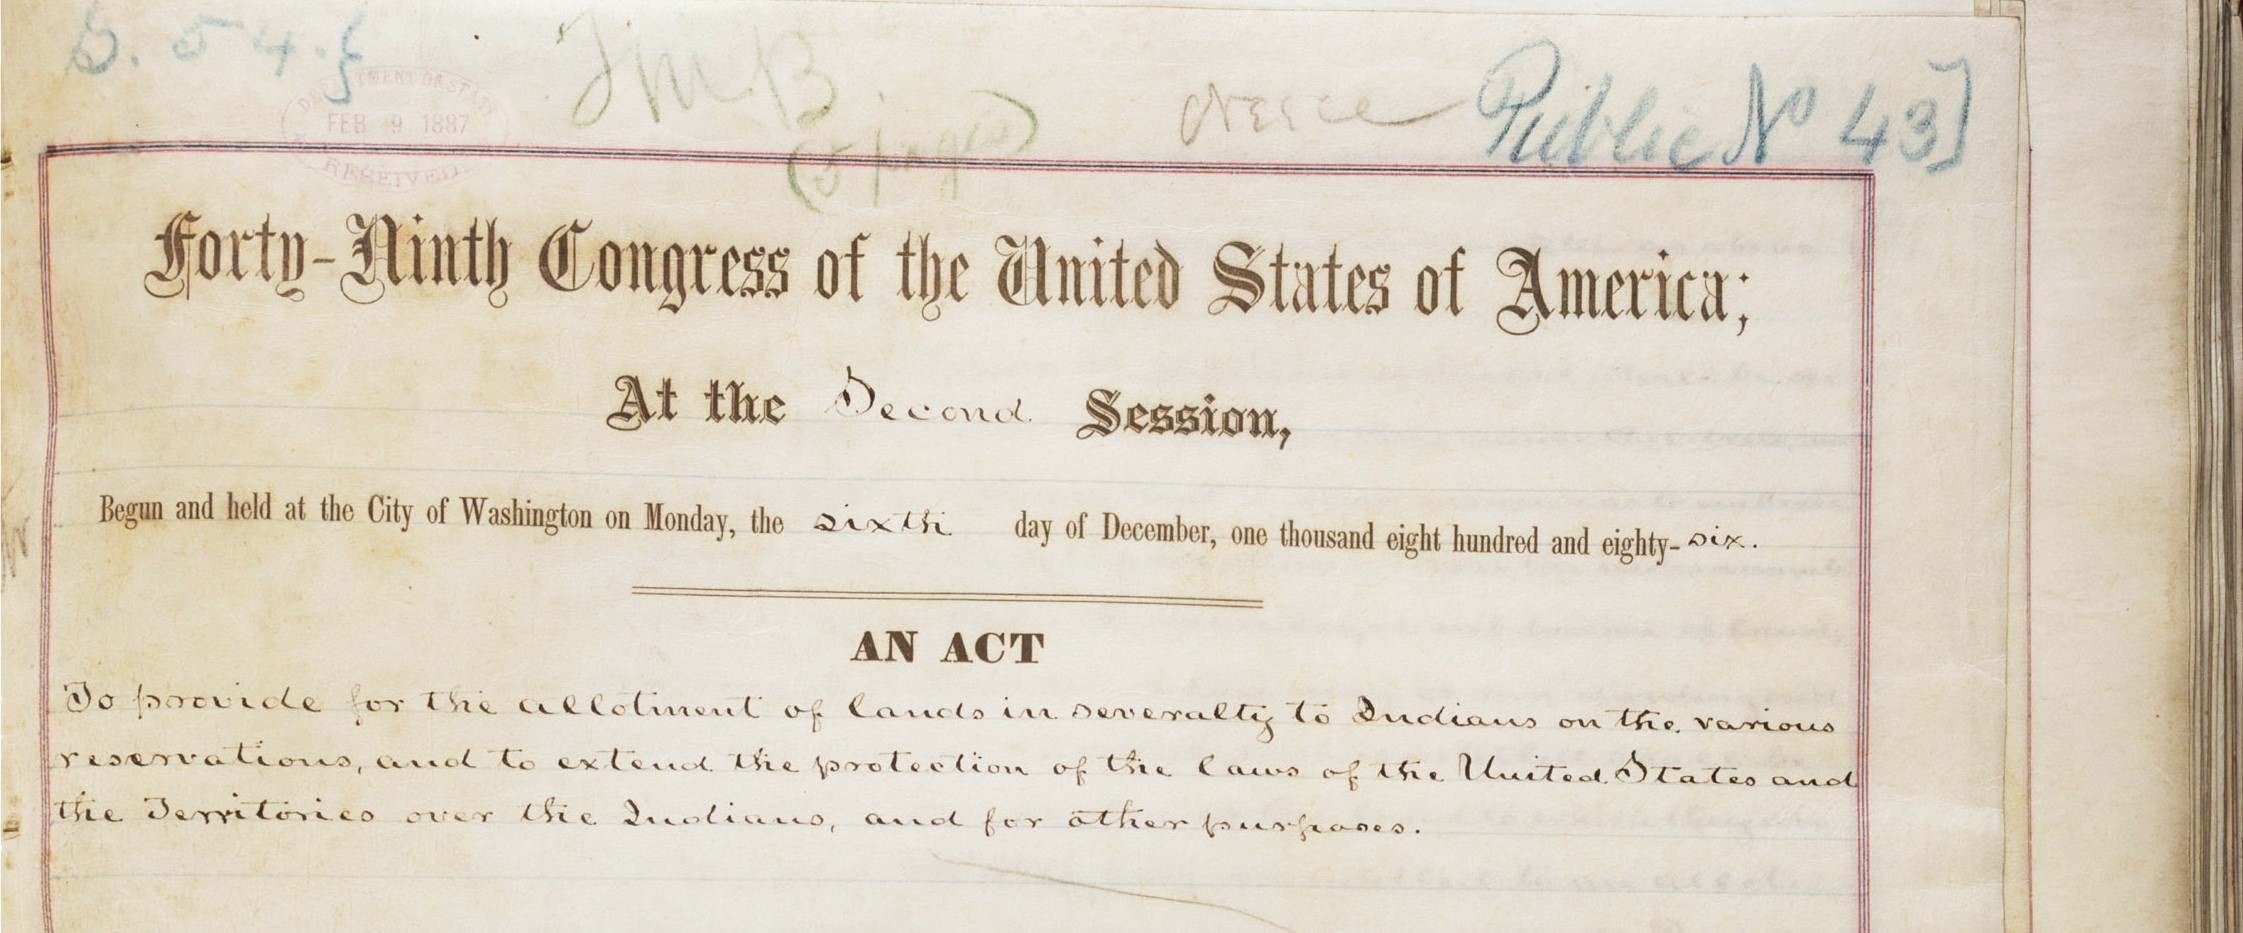 S. 54.}
JMB
(5 pages)
Public No 43]
DEPARTMENT OF STATE
FEB 9 1887
RECEIVED
Forty-Ninth Congress of the United States of America;
At the Second Session,
Begun and held at the City of Washington on Monday, the sixth day of December, one thousand eight hundred and eighty-six.
AN ACT
To provide for the allotment of lands in severalty to Indians on the various
reservations, and to extend the protection of the laws of the United States and
the Territories over the Indians, and for other purposes.